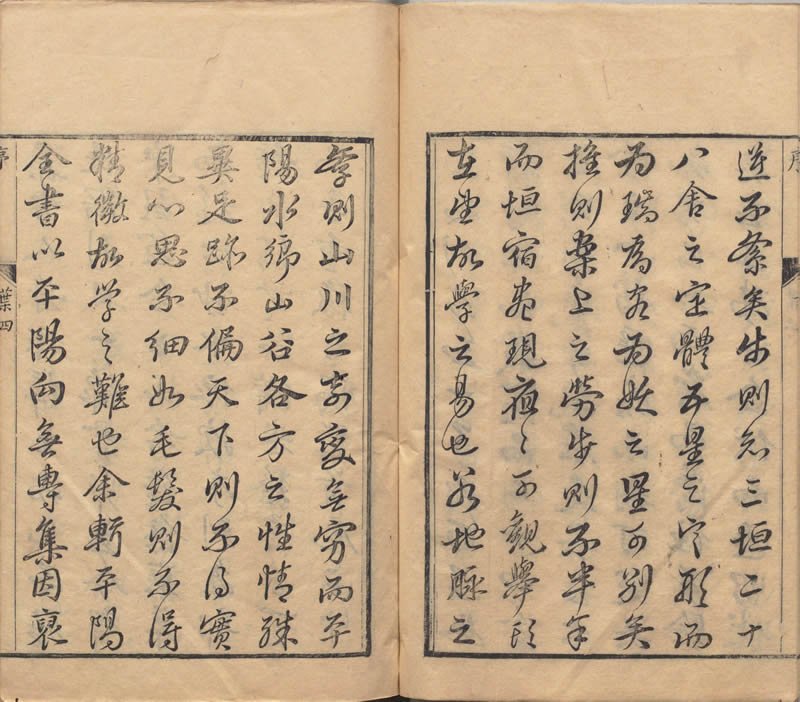 逆不紊矣步則知三垣二十
八舍之定體五星之定形而
為瑞為客為妖之星可別矣
推則案上之勞步則不半年
而垣宿現夜〻可觀舉頭
在望故學之易也若地脉之
學則山川之奇變無窮而平
陽水鄉山谷各方之性情殊
異足跡不偏天下則不得實
見心思不細如毛髮則不得
精微故學之難也余輯平陽
全書以平陽向無專集因裒
序
葉四